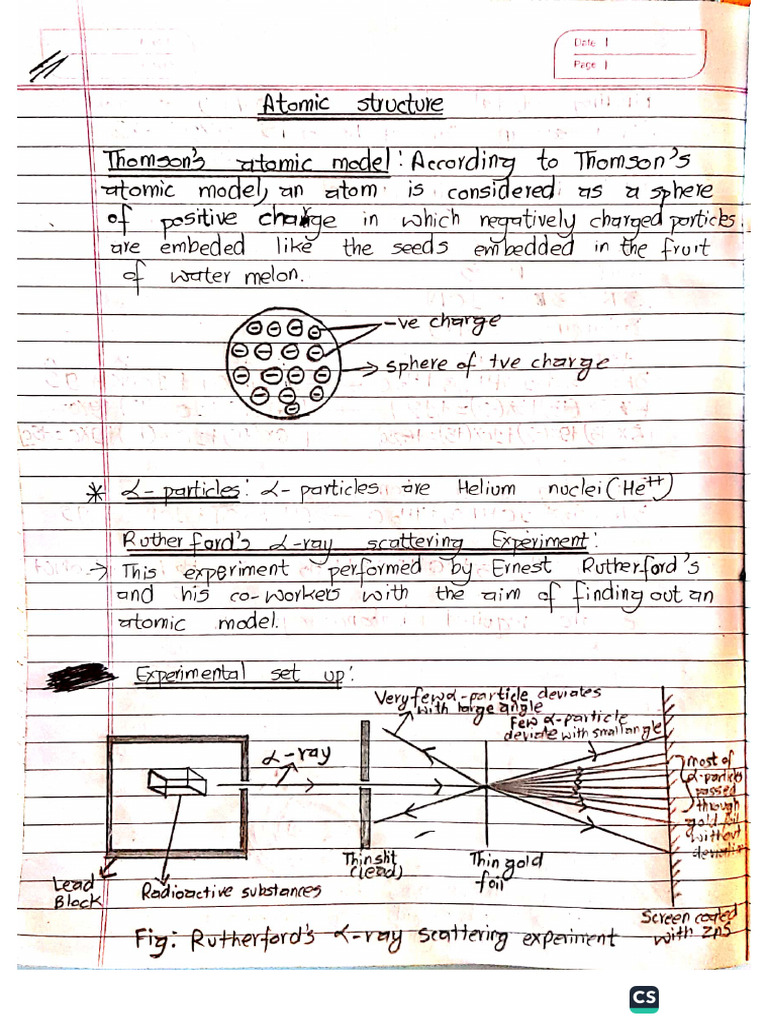 Date
Page
Atomic structure
Thomson's atomic model: According to Thomson's
atomic model, an atom is considered as a sphere
of positive charge in which negatively charged particles
are embeded like the seeds embedded in the fruit
of water melon.
-ve charge
sphere of tve charge
* α-particles: α-particles are Helium nuclei (He++)
Rutherford's α-ray scattering Experiment:
→ This experiment performed by Ernest Rutherford's
and his co-workers with the aim of finding out an
atomic model.
Experimental set up:
Very few α-particle deviates
with large angle
Few α-particle
deviate with small angle
α-ray
most of
α-particles
passed
through
gold foil
without
deviation
Thin slit
(lead)
Thin gold
foil
Lead
Block
Radioactive substances
Screen coated
with ZnS
Fig: Rutherford's α-ray scattering experiment
CS